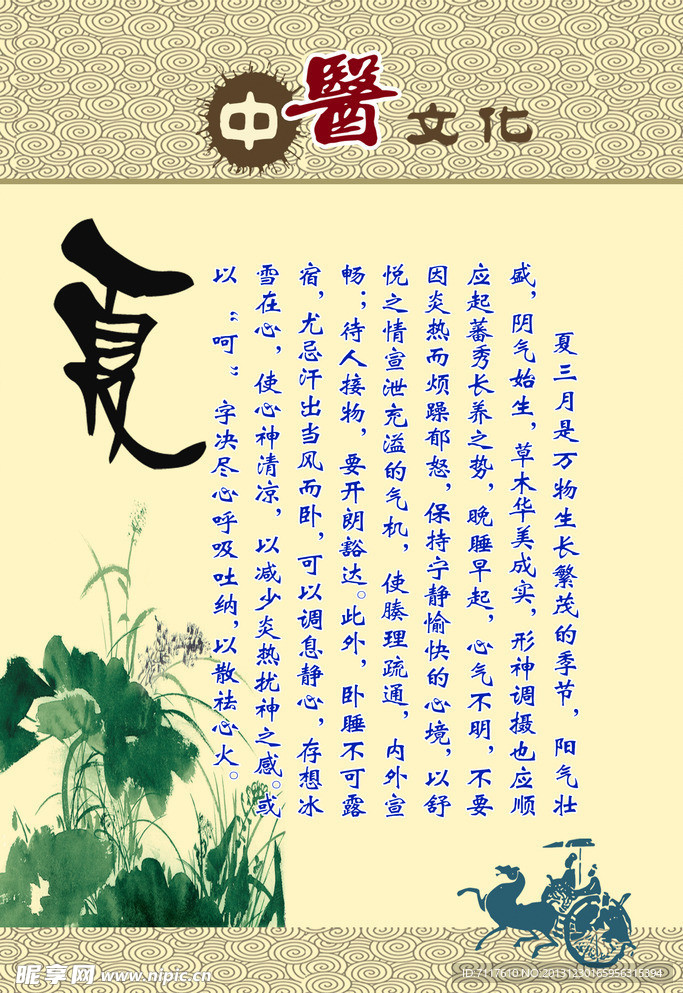 中醫文化
夏
夏三月是万物生长繁茂的季节，阳气壮
盛，阴气始生，草木华美成实，形神调摄也应顺
应起蕃秀长养之势，晚睡早起，心气不明，不要
因炎热而烦躁郁怒，保持宁静愉快的心境，以舒
悦之情宣泄充溢的气机，使腠理疏通，内外宣
畅；待人接物，要开朗豁达。此外，卧睡不可露
宿，尤忌汗出当风而卧，可以调息静心，存想冰
雪在心，使心神清凉，以减少炎热扰神之感。或
以“呵”字决尽心呼吸吐纳，以散祛心火。
昵享网 www.nipic.cn
ID:7117610 NO:20131230165956315394